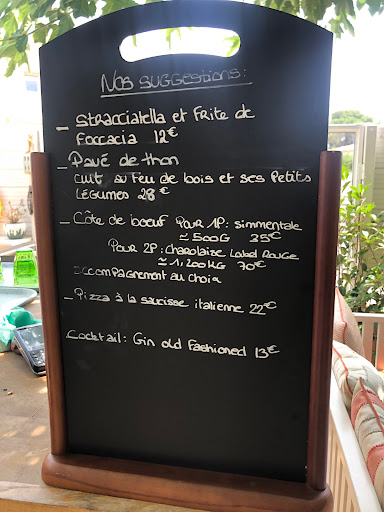 Nos suggestions:
- Stracciatella et Frite de
Foccacia 12€
- Pavé de thon
cuit au Feu de bois et ses Petits
Légumes 28€
- Côte de boeuf Pour 1P: simmentale
≃ 500G 35€
Pour 2P: charolaise Label Rouge
≃ 1,200KG 70€
accompagnement au choix
- Pizza à la saucisse italienne 22€
Cocktail: Gin old Fashioned 13€